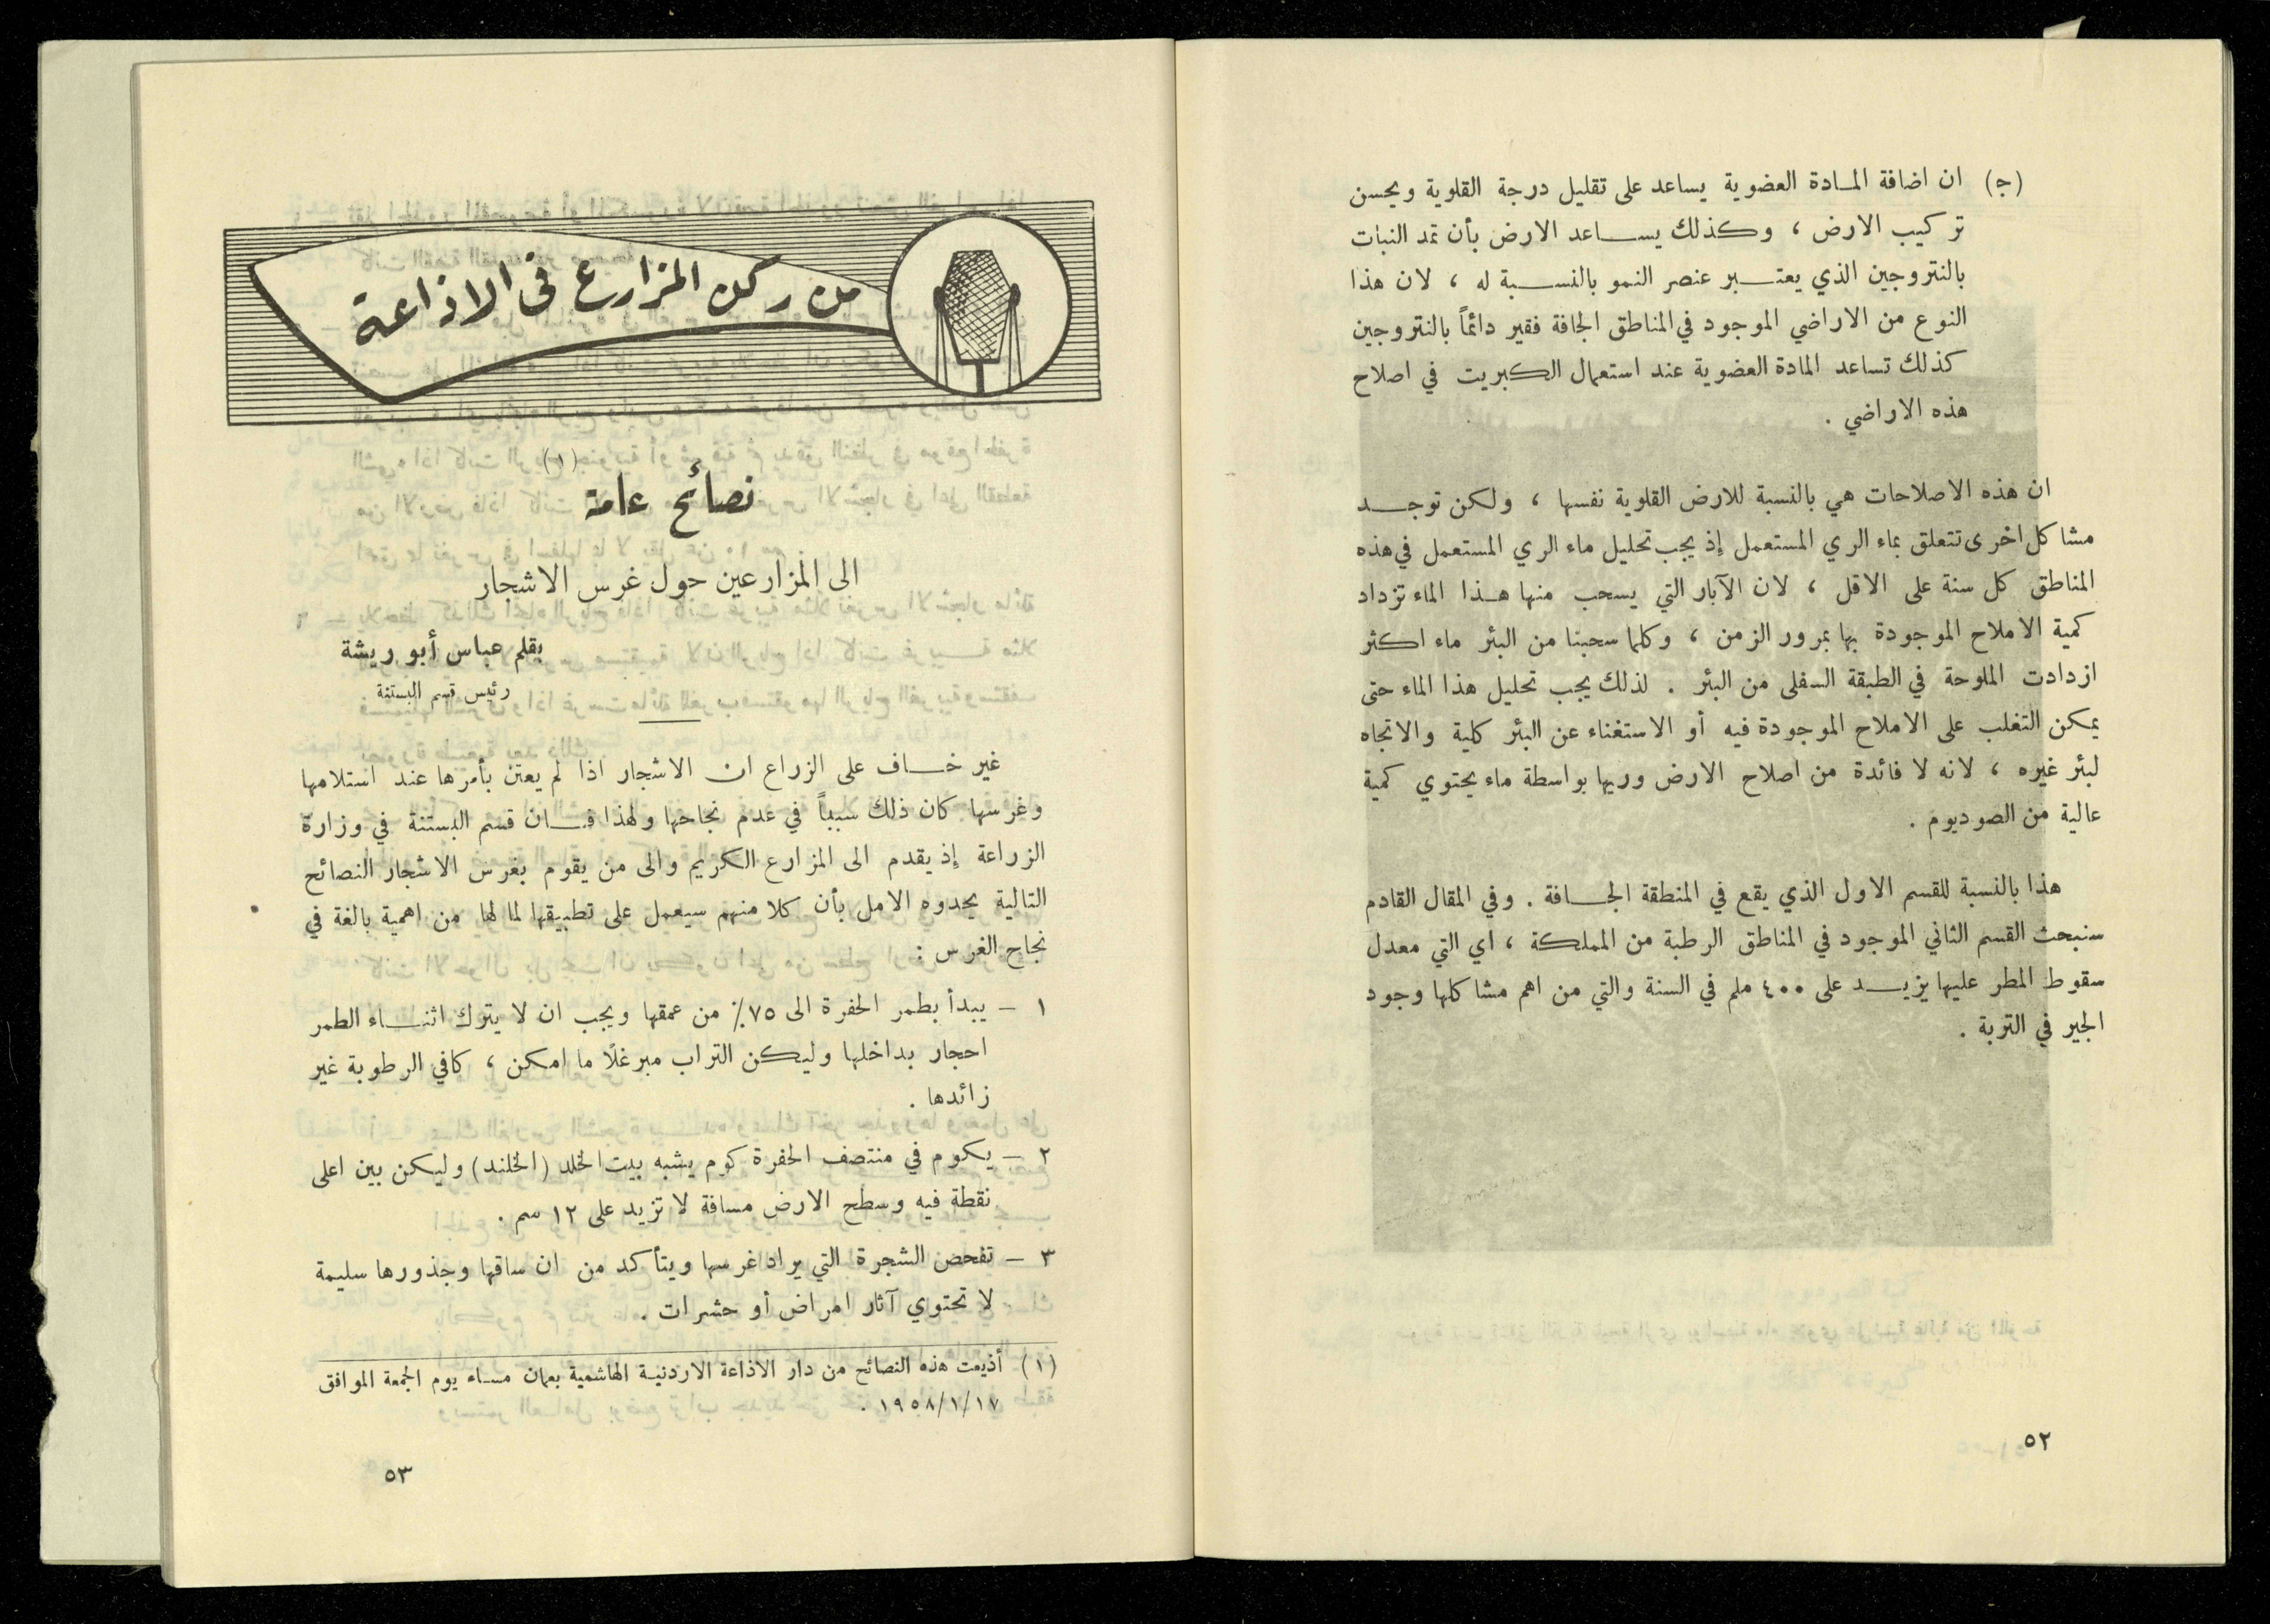 (ج) ان اضافة المادة العضوية يساعد على تقليل درجة القلوية ويحسن
تركيب الارض ، وكذلك يساعد الارض بأن تمد النبات
بالنتروجين الذي يعتبر عنصر النمو بالنسبة له ، لان هذا
النوع من الاراضي الموجود في المناطق الجافة فقير دائماً بالنتروجين
كذلك تساعد المادة العضوية عند استعمال الكبريت في اصلاح
هذه الاراضي .
ان هذه الاصلاحات هي بالنسبة للارض القلوية نفسها ، ولكن توجد
مشاكل اخرى تتعلق بماء الري المستعمل إذ يجب تحليل ماء الري المستعمل في هذه
المناطق كل سنة على الاقل ، لان الآبار التي يسحب منها هذا الماء تزداد
كمية الاملاح الموجودة بها بمرور الزمن ، وكلما سحبنا من البئر ماء اكثر
ازدادت الملوحة في الطبقة السفلى من البئر . لذلك يجب تحليل هذا الماء حتى
يمكن التغلب على الاملاح الموجودة فيه أو الاستغناء عن البئر كلية والاتجاه
لبئر غيره ، لانه لا فائدة من اصلاح الارض وريها بواسطة ماء يحتوي كمية
عالية من الصوديوم .
هذا بالنسبة للقسم الاول الذي يقع في المنطقة الجافة . وفي المقال القادم
سنبحث القسم الثاني الموجود في المناطق الرطبة من المملكة ، اي التي معدل
سقوط المطر عليها يزيد على ٤٠٠ ملم في السنة والتي من اهم مشاكلها وجود
الجير في التربة .
٥٢
من ركن المزارع في الاذاعة
نصائح عامة (١)
الى المزارعين حول غرس الاشجار
بقلم عباس أبو ريشة
رئيس قسم البستنة
غير خاف على الزراع ان الاشجار اذا لم يعتن بأمرها عند استلامها
وغرسها كان ذلك سبباً في عدم نجاحها ولهذا فان قسم البستنة في وزارة
الزراعة إذ يقدم الى المزارع الكريم والى من يقوم بغرس الاشجار النصائح
التالية يحدوه الامل بأن كلا منهم سيعمل على تطبيقها لما لها من اهمية بالغة في
نجاح الغرس :
١ – يبدأ بطمر الحفرة الى ٧٥٪ من عمقها ويجب ان لا يترك اثناء الطمر
احجار بداخلها وليكن التراب مبرغلاً ما امكن ، كافي الرطوبة غير
زائدها .
٢ – يكوم في منتصف الحفرة كوم يشبه بيت الخلد (الخلند) وليكن بين اعلى
نقطة فيه وسطح الارض مسافة لا تزيد على ١٢ سم .
٣ – تفحص الشجرة التي يراد غرسها ويتأكد من ان ساقها وجذورها سليمة
لا تحتوي آثار امراض أو حشرات .
(١) أذيعت هذه النصائح من دار الاذاعة الاردنية الهاشمية بعمان مساء يوم الجمعة الموافق
١٩٥٨/١/١٧ .
٥٣